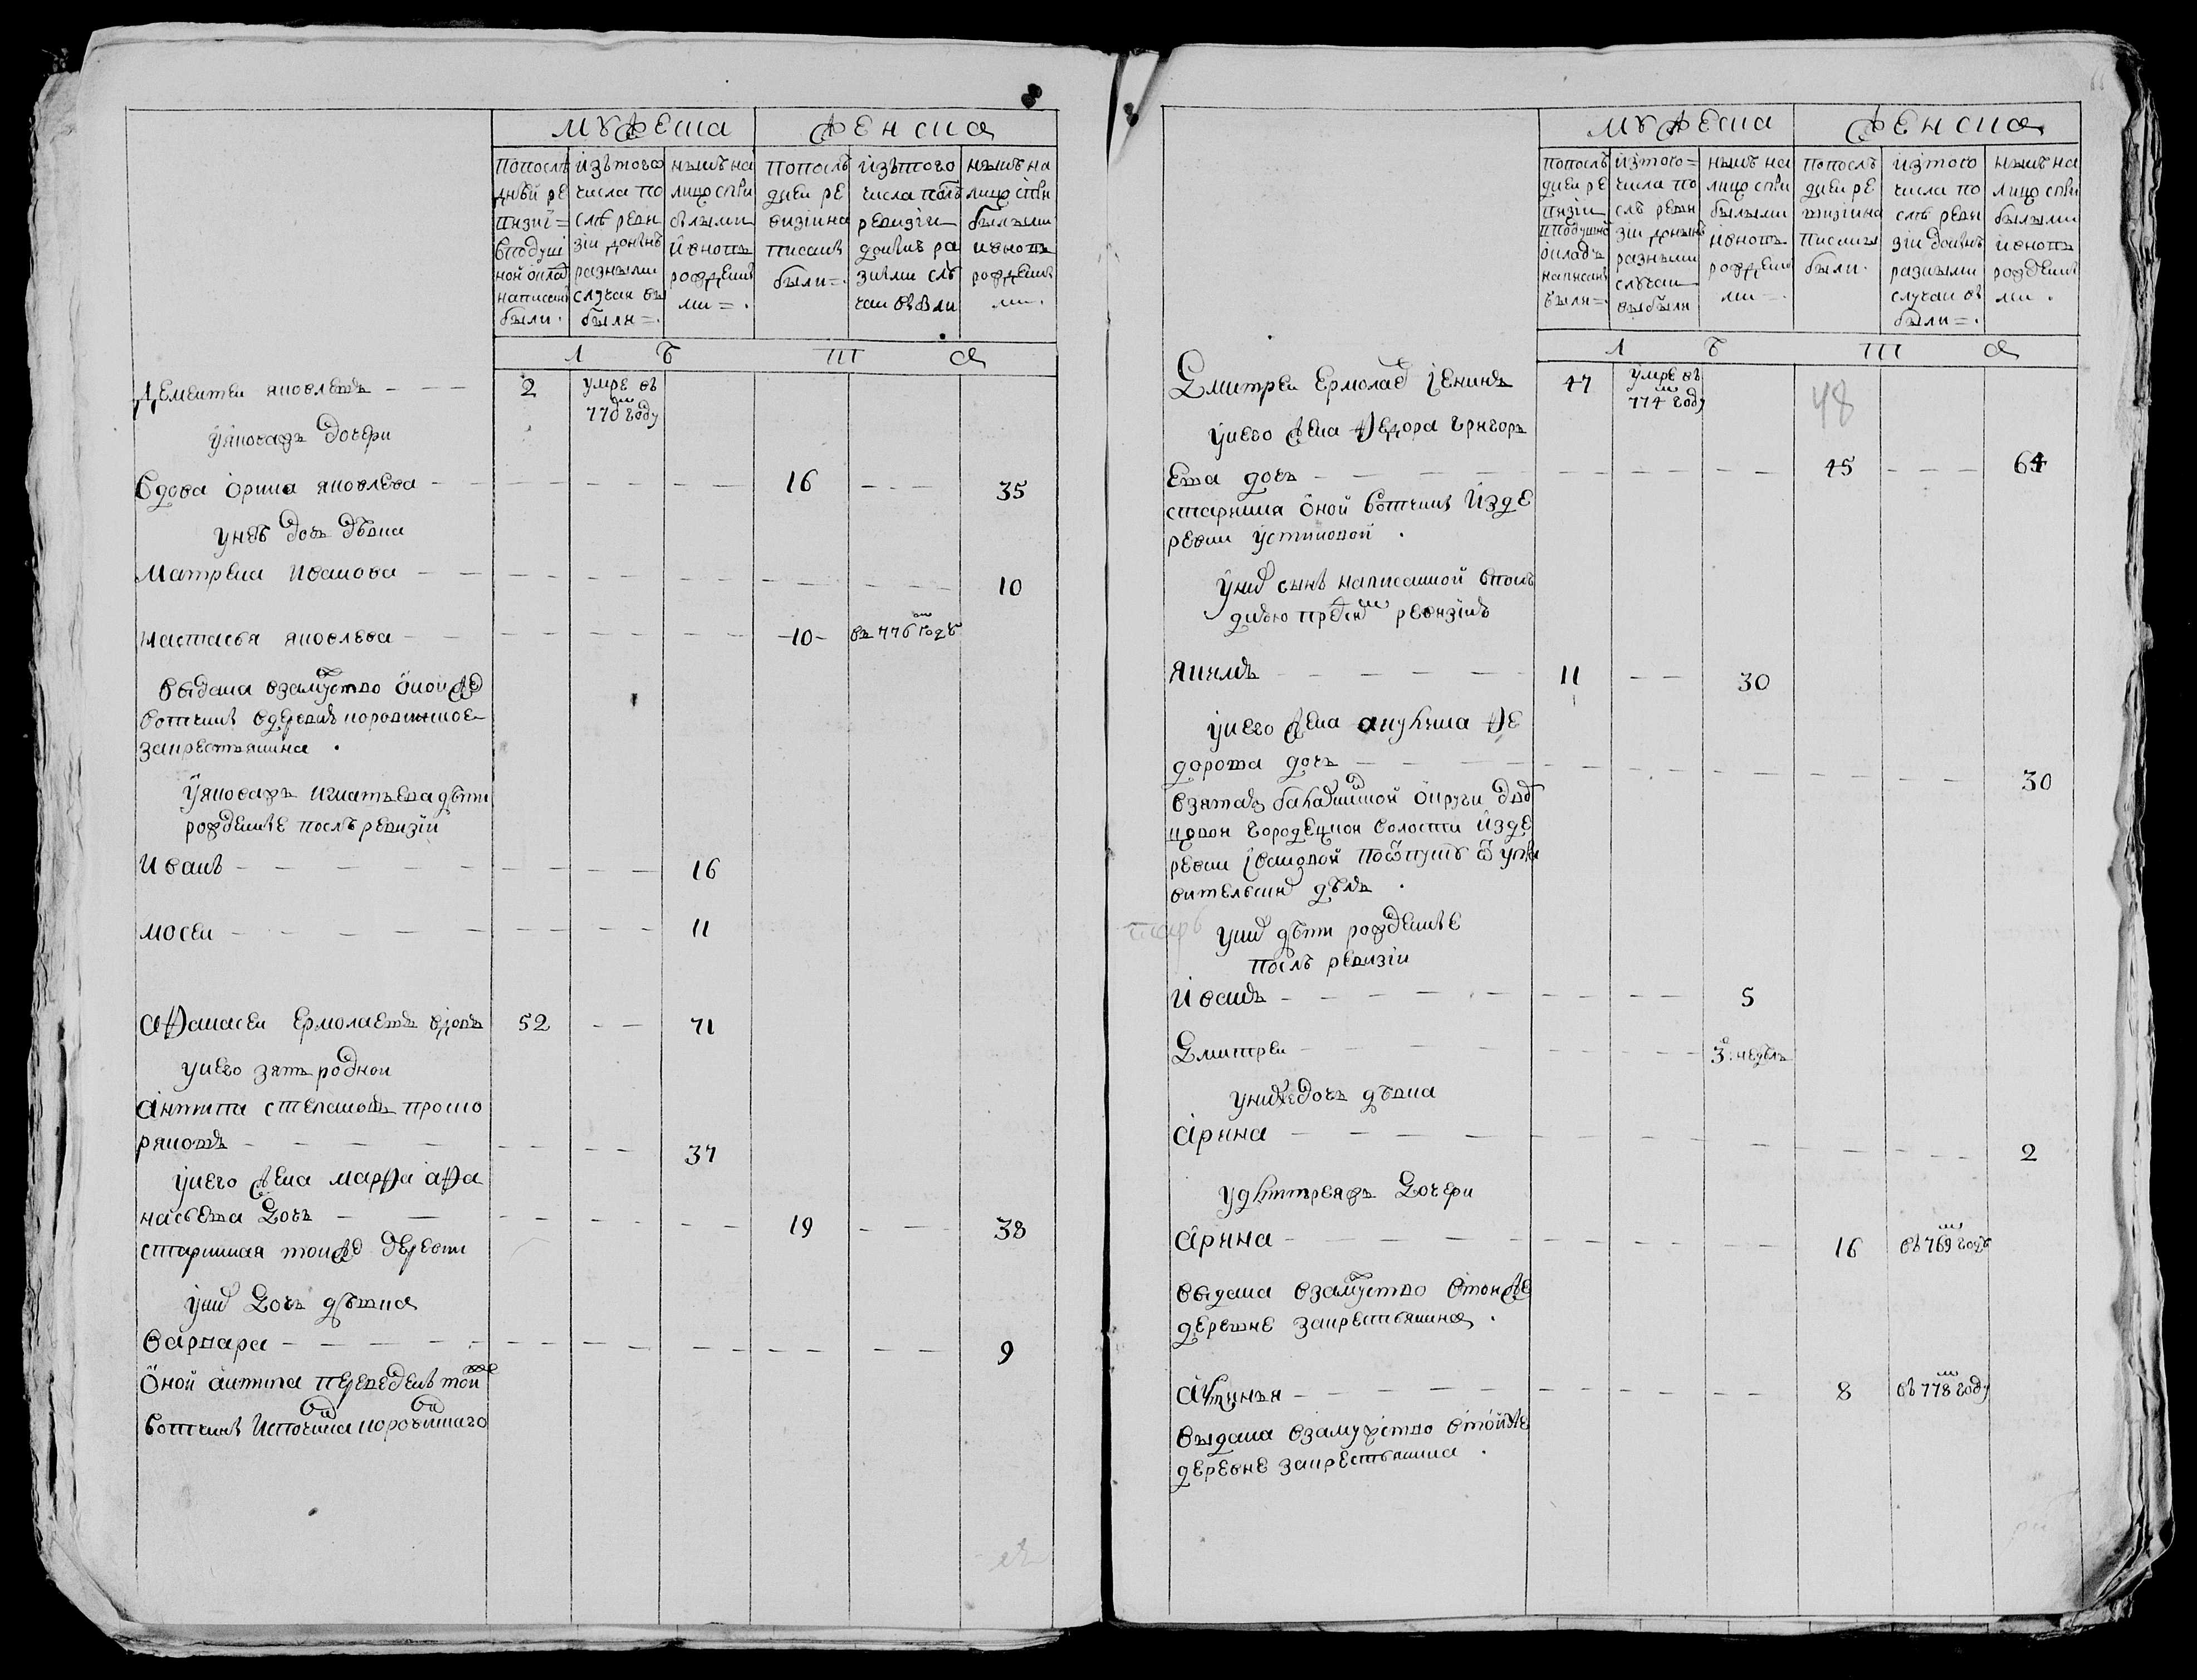 мужеска
женска
попослѣ
дней ре
визіи=
вподуш
ной оклад
написаны
были.
изътого
числа по
слѣ реви
зіи донынѣ
разными
случаи вы
были=.
нынѣ на
лицо спри
былыми
и вновь
рожденны
ми=.
попослѣ
дней ре
визіи на
писаны
были=.
изътого
числа послѣ
ревизіи
донынѣ ра
зными слу
чаи выбыли
нынѣ на
лицо спри
былыми
и вновь
рожденны
ми.
л ѣ т а
Дементеи яковлевъ 2 умре въ
770м году
у яковажъ дочери
вдова орина яковлева 16 35
унеѣ дочь дѣвка
матрена иванова 10
настасья яковлева 10 въ 776м годѣ
выдана взамужство оной же
вотчинѣ вдеревнѣ
закрестьянина.
у яковажъ игнатьева дѣти
рожденные послѣ ревизіи
иванъ 16
мосеи 11
афанасеи ермолаевъ вдовъ 52 71
унего зять родной
антипа степановъ проско
ряковъ 37
унего жена марфа афа
насьева дочь 19 38
старинная тойже деревни
уних дочь дѣвка
варвара 9
оной антипа переведенъ той
вотчинѣ
мужеска
женска
попослѣ
дней ре
визіи
вподушно
окладъ
написаны
были=.
изтого=
числа по
слѣ реви
зіи донынѣ
разными
случаи
выбыли
нынѣ на
лицо спри
былыми
и вновь
рожденны
ми=.
попослѣ
дней ре
визіи на
писаны
были.
изтого
числа по
слѣ реви
зіи донынѣ
разными
случаи вы
были=.
нынѣ на
лицо спри
былыми
и вновь
рожденны
ми.
л ѣ т а
Дмитреи ермолаев 47 умре въ
774м году 48
унего жена федора григорь
ева дочь 45 64
старинная оной вотчинѣ изде
ревни устиновой.
уних сынъ написанной впослѣ
днюю пред сим ревизію
якимъ 11 30
унего жена акулина фе
дорова дочь 30
взятая балахнинской округи двор
цовой городецкой волости изде
ревни ивановой поотпуску от упра
вительских дѣлъ.
уних дѣти рожденные
послѣ ревизіи
иванъ 5
Дмитреи 3: недѣль
уних же дочь дѣвка
арина 2
удмитреяжъ дочери
арина 16 въ 769м годѣ
выдана взамужство втойже
деревне закрестьянина.
аксинья 8 въ 778м году
выдана взамужство втойже
деревне закрестьянина.